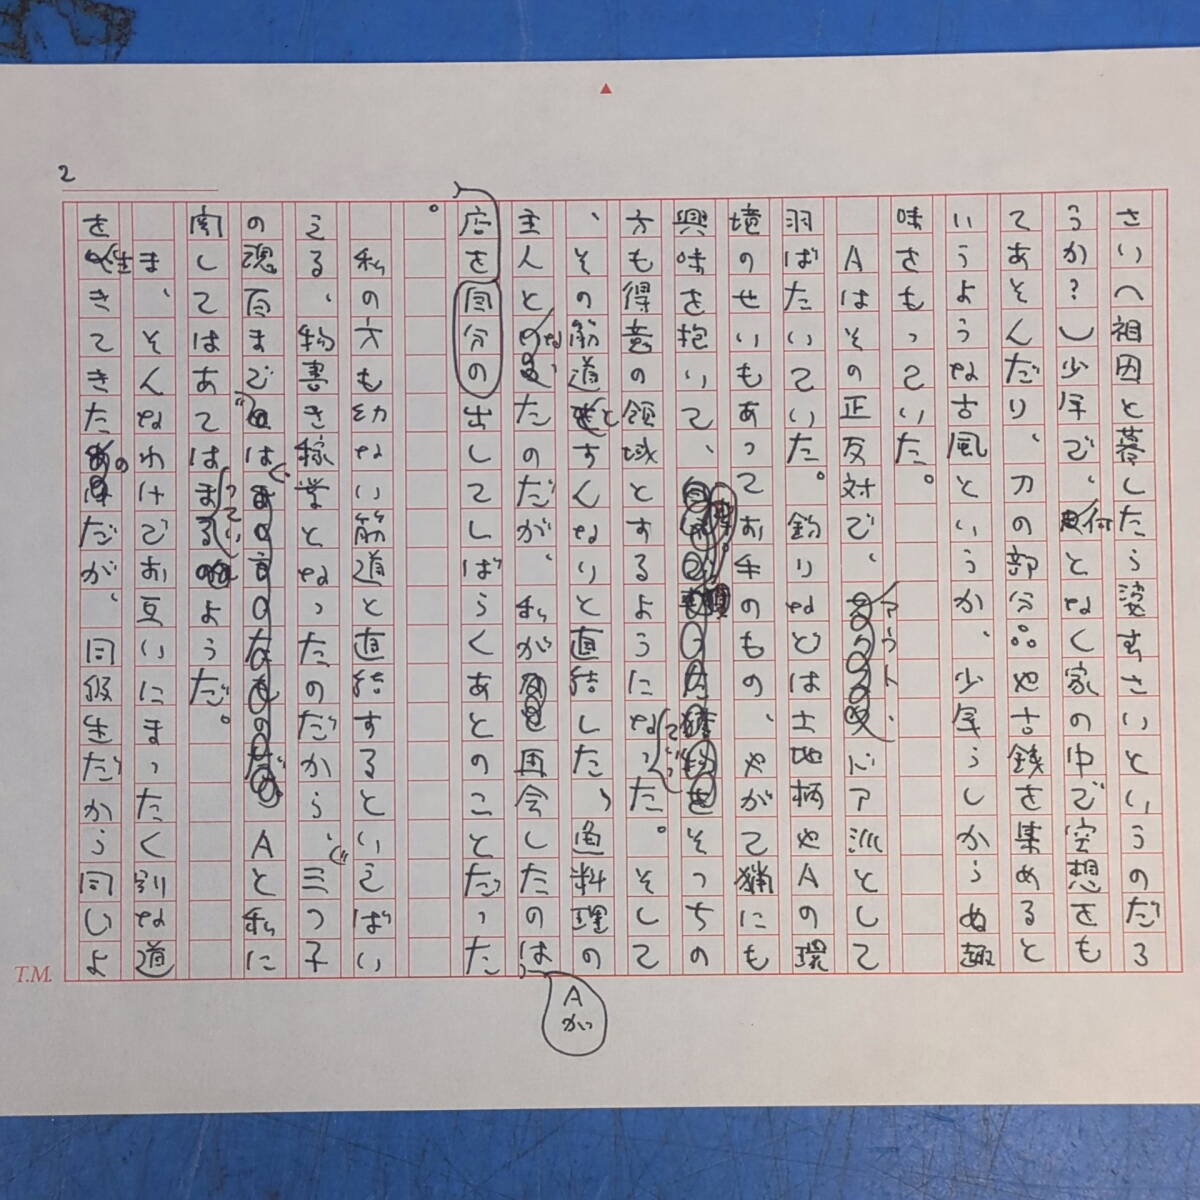 2
さいへ祖母と暮したら婆さまさいというのだろ
うか?し少年で、何となく家の中で空想をも
てあそんだり、刀の部分品や古銭を集めると
いうような古風というか、少年らしからぬ趣
味をもっていた。
Aはその正反対で、アウト、ドア派として
羽ばたいていた。釣りなどは土地柄やAの環
境のせいもあってお手のもの、やがて猟にも
興味を抱いて、そっちの
方も得意の領域とするようになっていった。そして
、その筋道とすんなりと直結した、魚料理の
主人となったのだが、私が再会したのは、Aが
店を自分の出してしばらくあとのことだった
。
私の方も幼ない筋道と直結するといえばい
える、物書き稼業となったのだから、“三つ子
の魂百まで”は、Aと私に
関してはあてはまっているようだ。
ま、そんなわけでお互いにまったく別な道
を生きてきたのだが、同級生だから同じよ
T.M.